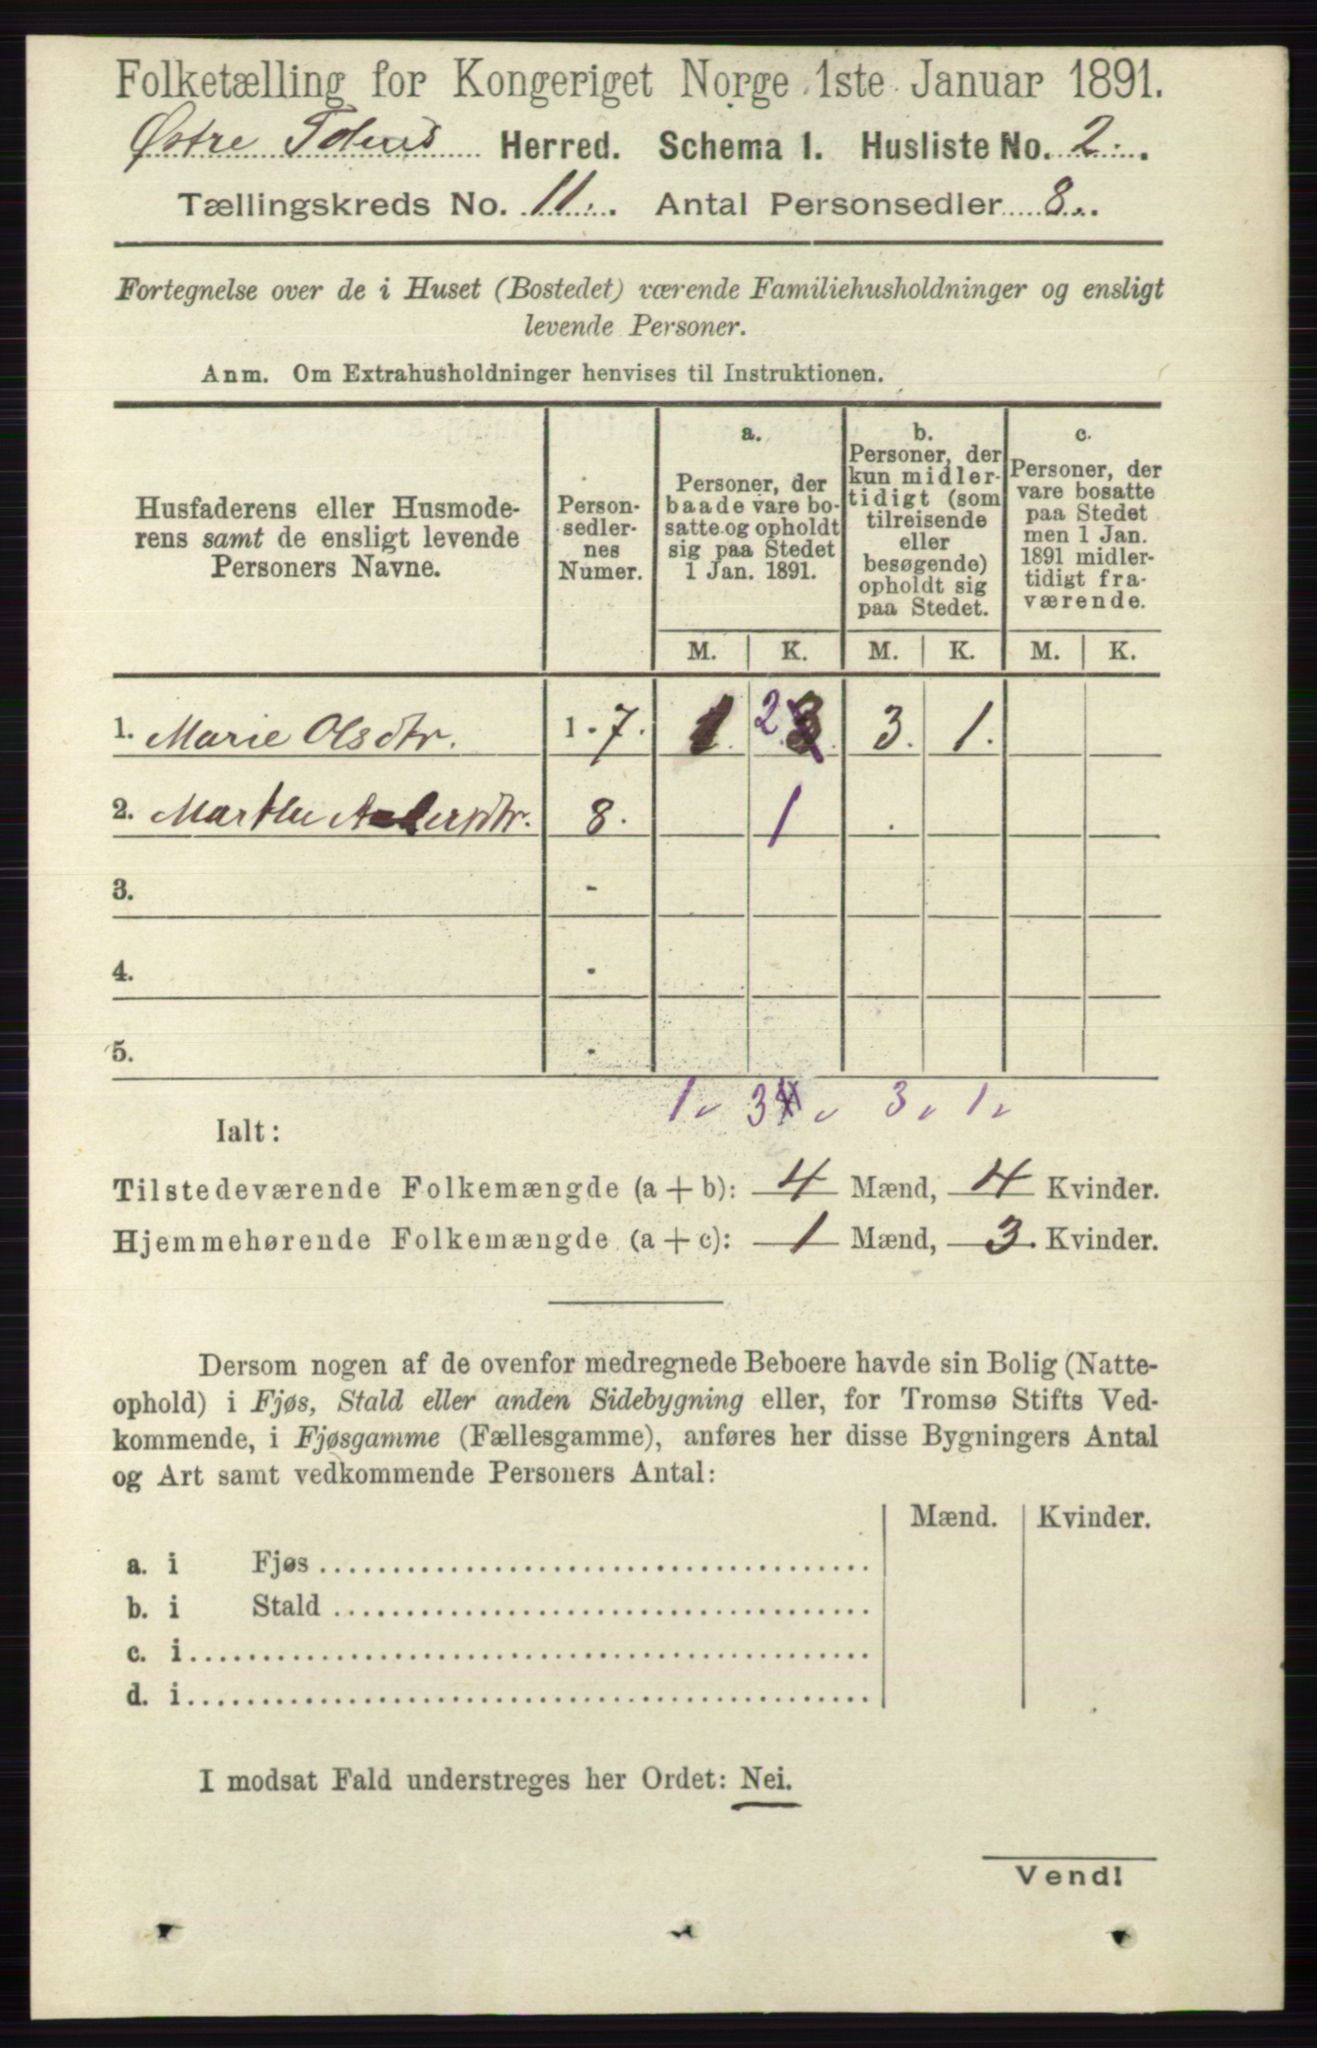 Folketælling for Kongeriget Norge 1ste Januar 1891.
Østre Herred. Schema 1. Husliste No. 2.
Tællingskreds No. 11. Antal Personsedler 8.
Fortegnelse over de i Huset (Bostedet) værende Familiehusholdninger og ensligt
levende Personer.
Anm. Om Extrahusholdninger henvises til Instruktionen.
Husfaderens eller Husmode-
rens samt de ensligt levende
Personers Navne.
Person-
sedler-
nes
Numer.
a.
Personer, der
baade vare bo-
satte og opholdt
sig paa Stedet
1 Jan. 1891.
b.
Personer, der
kun midler-
tidigt (som
tilreisende
eller
besøgende)
opholdt sig
paa Stedet.
c.
Personer, der
vare bosatte
paa Stedet
men 1 Jan.
1891 midler-
tidigt fra-
værende.
M. K. M. K. M. K.
1. Marie Olsdtr. 1 - 7. 1. 2 3. 3. 1.
2. Marthe 8. 1
3. -
4. -
5. -
1 3 4 3 1
Ialt:
Tilstedeværende Folkemængde (a + b): 4 Mænd, 4 Kvinder.
Hjemmehørende Folkemængde (a + c): 1 Mænd, 3. Kvinder.
Dersom nogen af de ovenfor medregnede Beboere havde sin Bolig (Natte-
ophold) i Fjøs, Stald eller anden Sidebygning eller, for Tromsø Stifts Ved-
kommende, i Fjøsgamme (Fællesgamme), anføres her disse Bygningers Antal
og Art samt vedkommende Personers Antal:
Mænd. Kvinder.
a. i Fjøs
b. i Stald
c. i
d. i
I modsat Fald understreges her Ordet: Nei.
Vend!